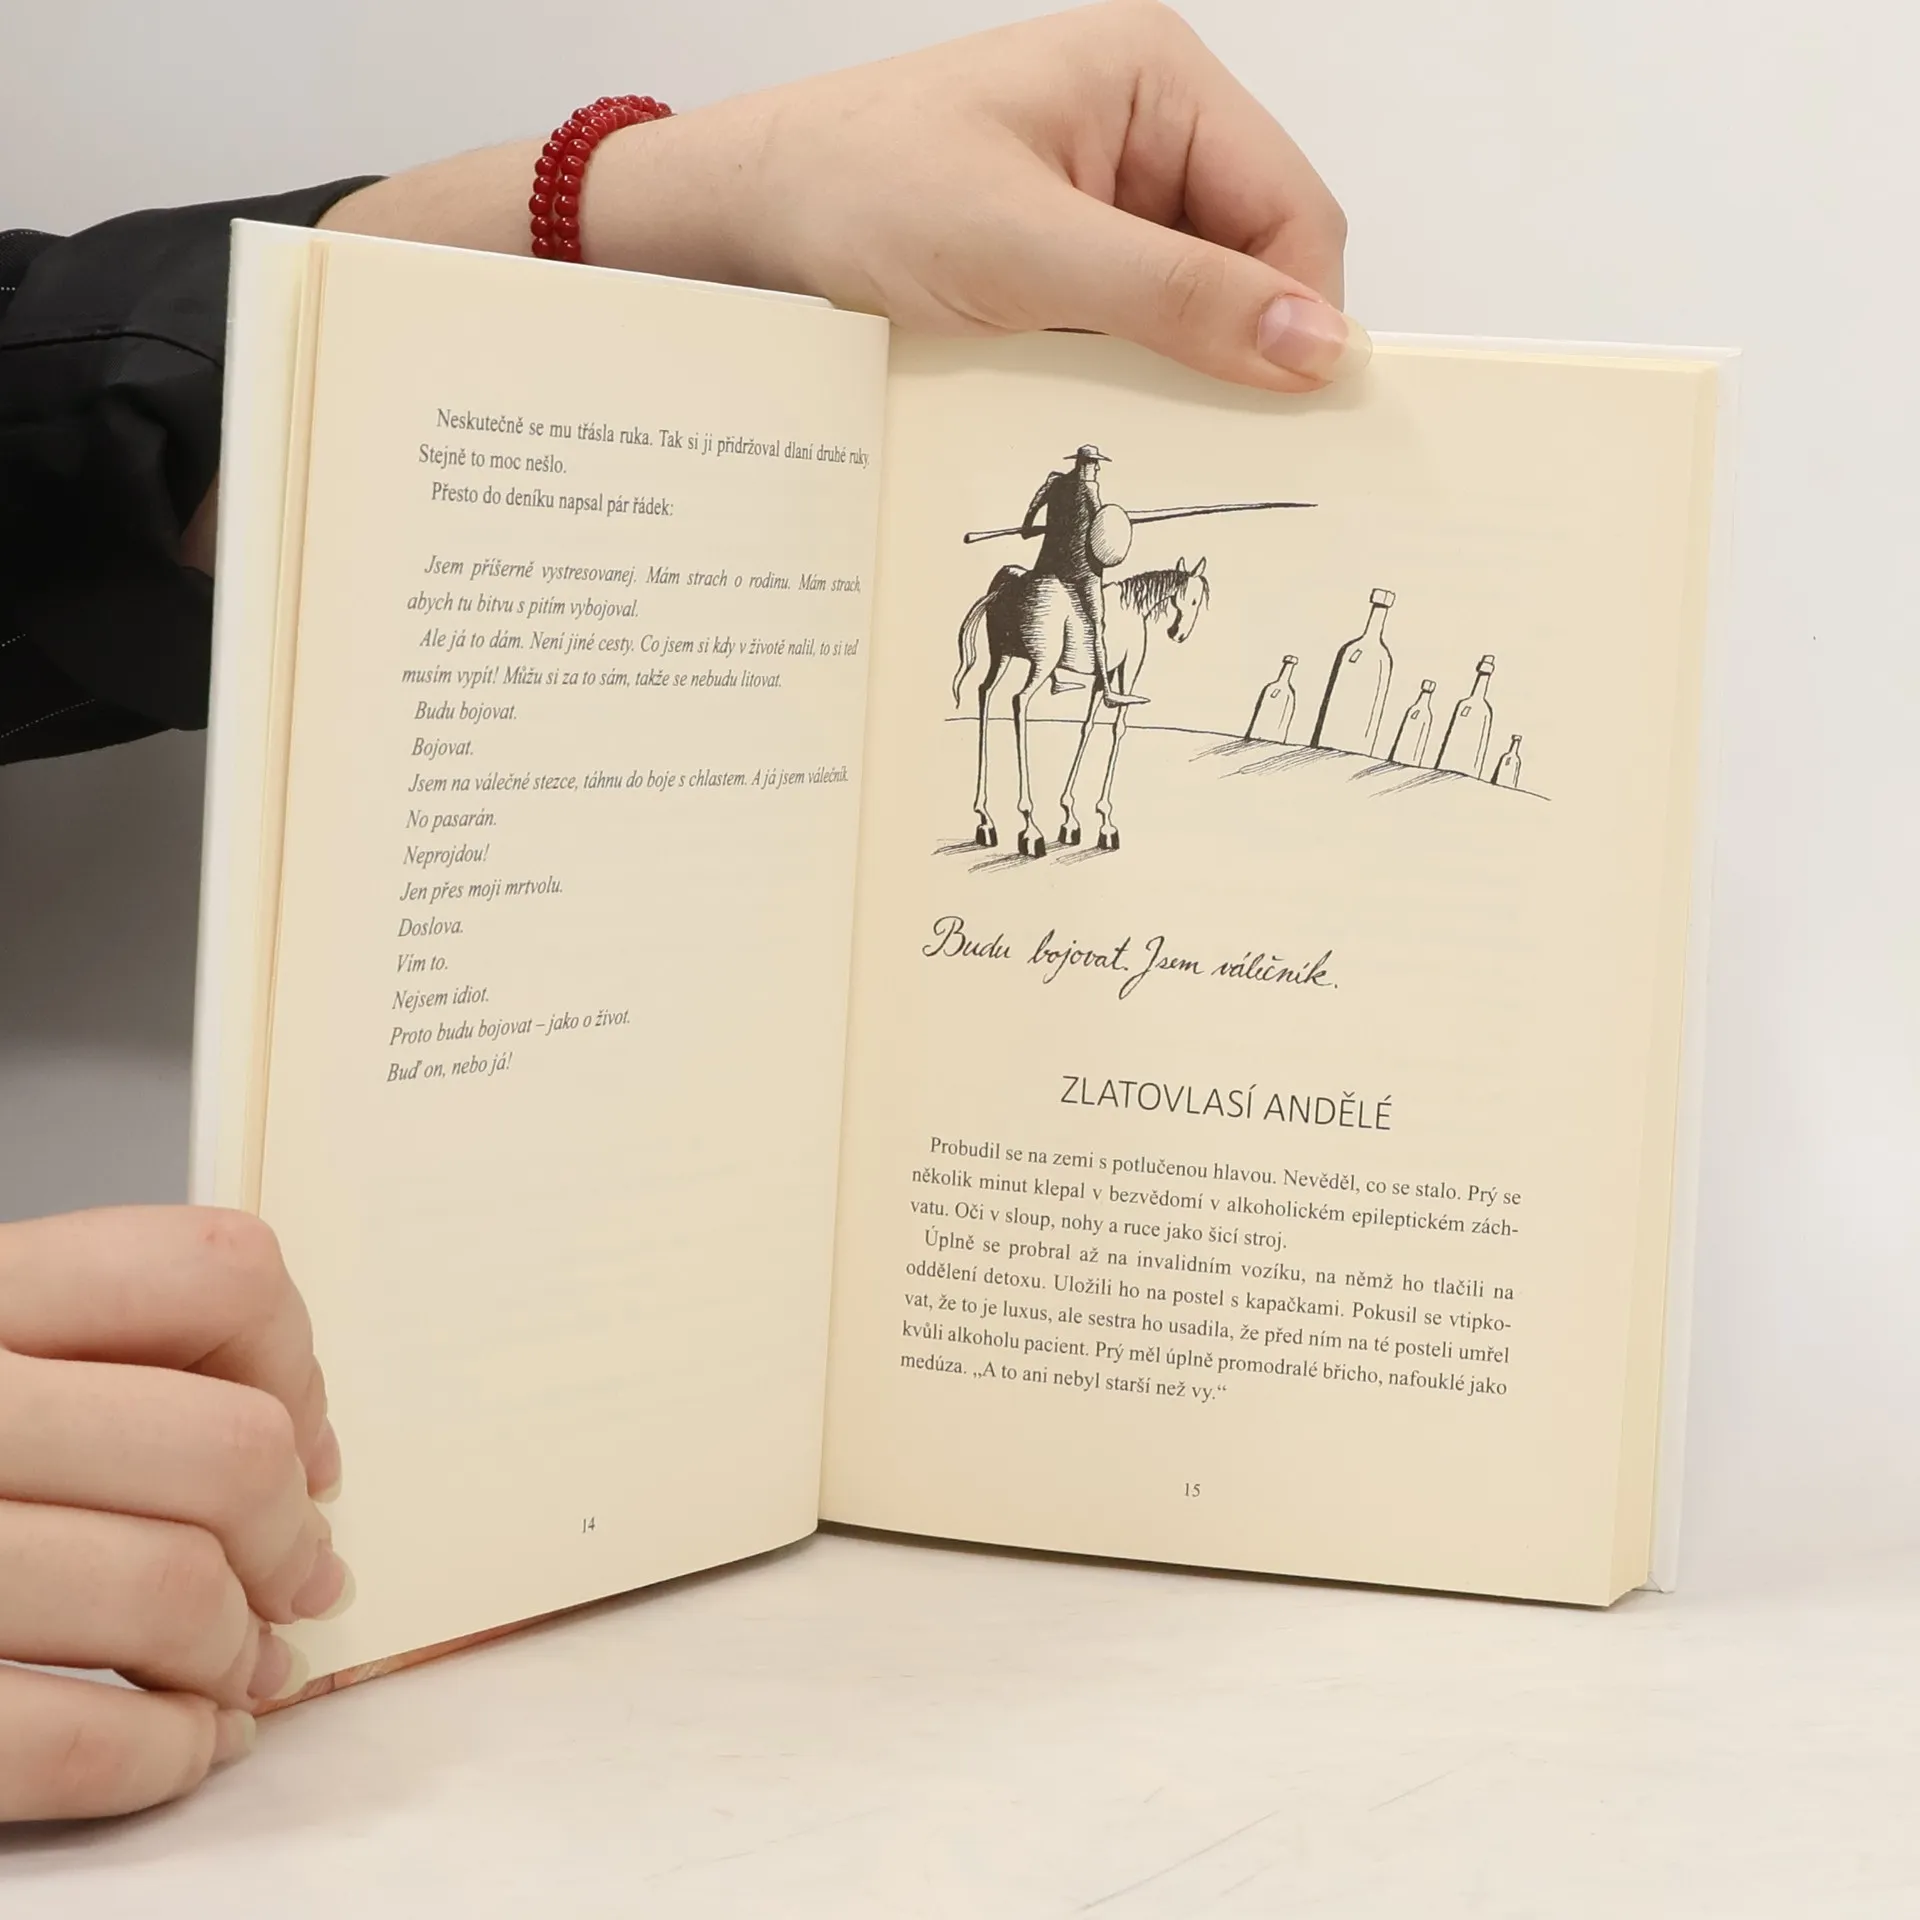 Neskutečně se mu třásla ruka. Tak si ji přidržoval dlaní druhé ruky.
Stejně to moc nešlo.
Přesto do deníku napsal pár řádek:
Jsem příšerně vystresovanej. Mám strach o rodinu. Mám strach,
abych tu bitvu s pitím vybojoval.
Ale já to dám. Není jiné cesty. Co jsem si kdy v životě nalil, to si teď
musím vypít! Můžu si za to sám, takže se nebudu litovat.
Budu bojovat.
Bojovat.
Jsem na válečné stezce, táhnu do boje s chlastem. A já jsem válečník.
No pasarán.
Neprojdou!
Jen přes moji mrtvolu.
Doslova.
Vím to.
Nejsem idiot.
Proto budu bojovat – jako o život.
Buď on, nebo já!
14
Budu bojovat. Jsem válečník.
ZLATOVLASÍ ANDĚLÉ
Probudil se na zemi s potlučenou hlavou. Nevěděl, co se stalo. Prý se
několik minut klepal v bezvědomí v alkoholickém epileptickém zách-
vatu. Oči v sloup, nohy a ruce jako šicí stroj.
Úplně se probral až na invalidním vozíku, na němž ho tlačili na
oddělení detoxu. Uložili ho na postel s kapačkami. Pokusil se vtipko-
vat, že to je luxus, ale sestra ho usadila, že před ním na té posteli umřel
kvůli alkoholu pacient. Prý měl úplně promodralé břicho, nafouklé jako
medúza. „A to ani nebyl starší než vy.“
15